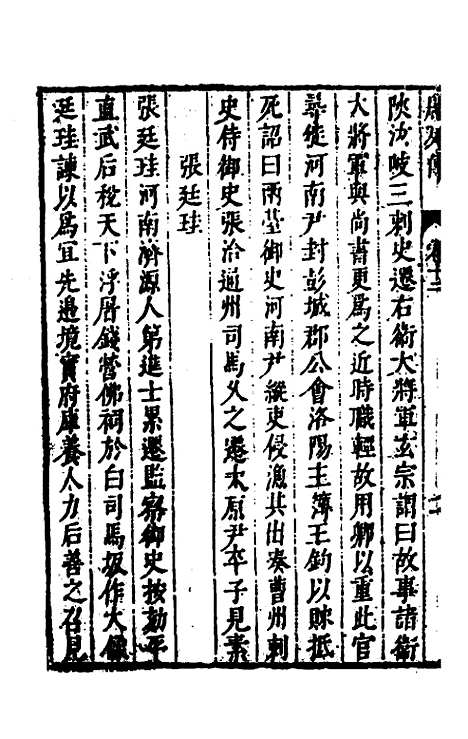 陝汾岐三刺史遷右衛大將軍玄宗謂曰故事諸衛
大將軍與尚書更爲之近時職輕故用卿以重此官
尋徙河南尹封彭城郡公會洛陽主簿王鈞以賕抵
死詔曰兩臺御史河南尹縱吏侵漁其出奏曹州刺
史侍御史張洽通州司馬久之遷太原尹卒子見素
張廷珪
張廷珪河南濟源人第進士累遷監察御史按劾平
直武后稅天下浮屠錢營佛祠於白司馬坂作大像
廷珪諫以爲宜先邊境實府庫養人力后善之召見